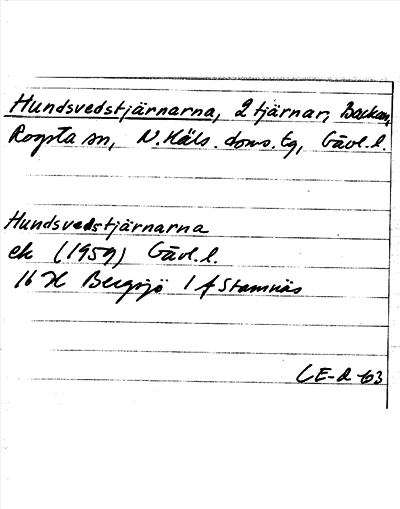 Hundsvedstjärnarna, 2 tjärnar, Backen,
Rogsta sn, N. Häls. doms. tg, Gävl. l.
Hundsvedstjärnarna
ek (1959) Gävl. l.
16 H Bergsjö 1 f Stamnäs
CE-d 63